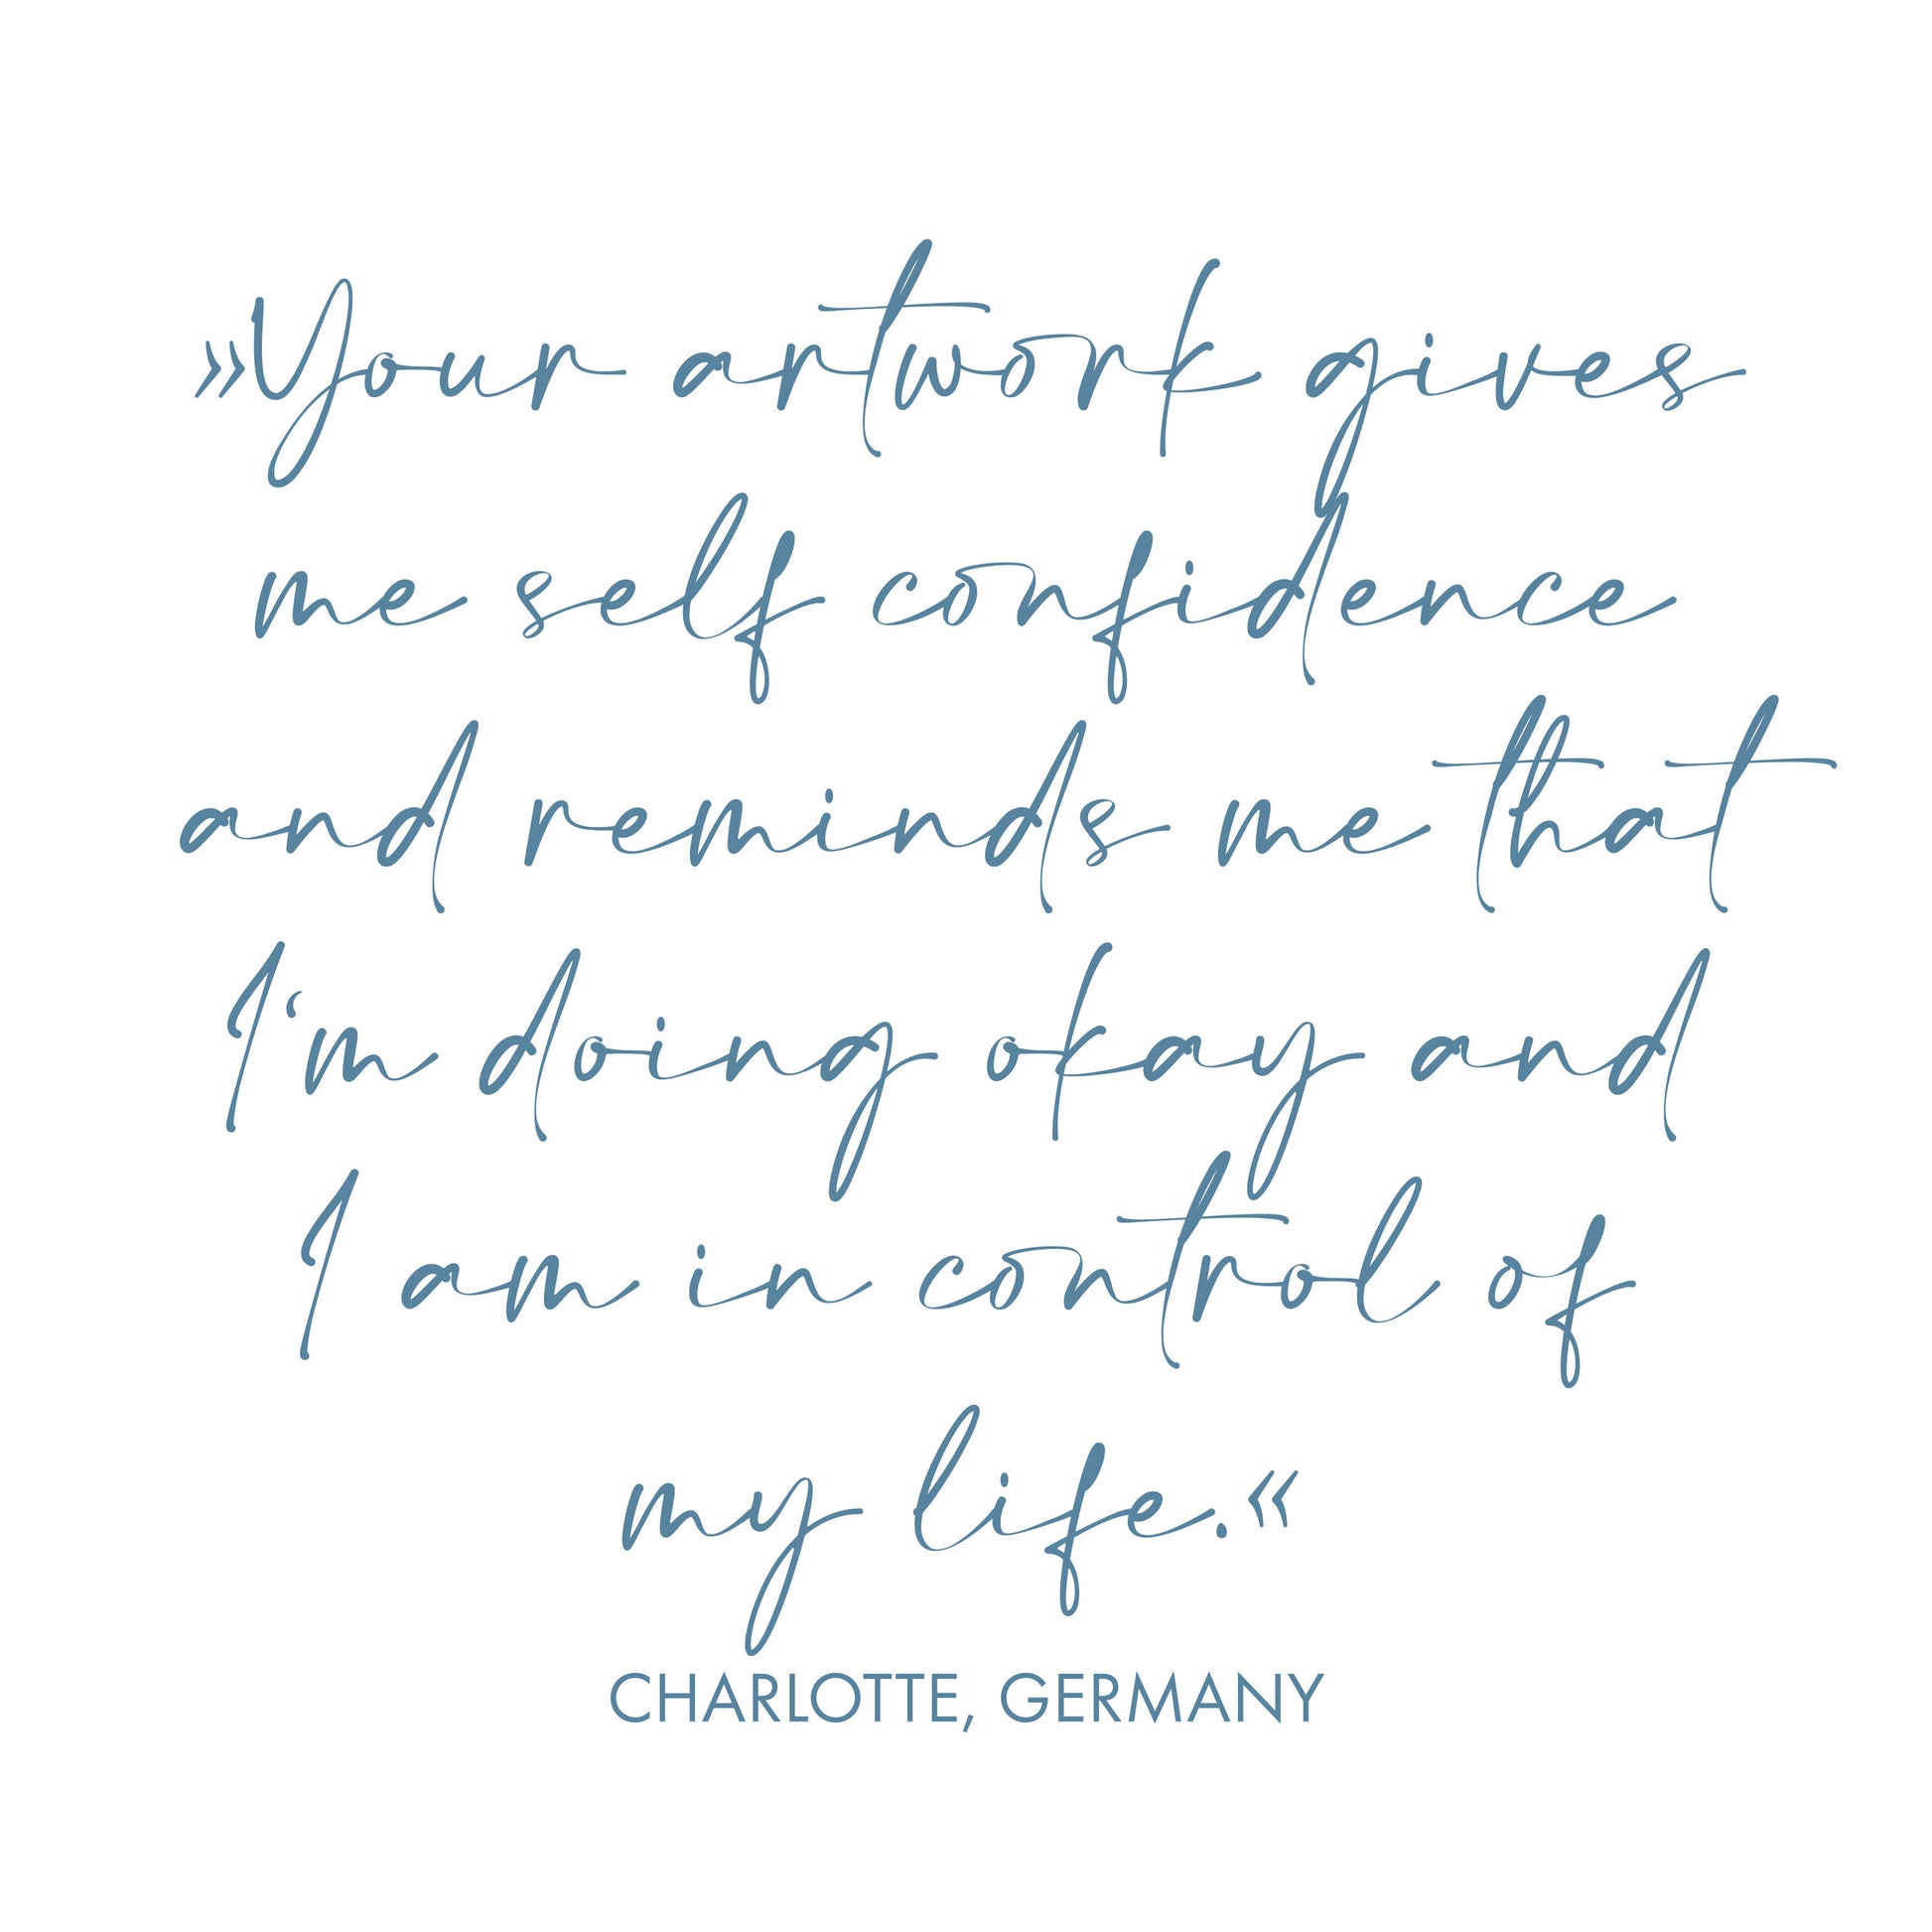 »Your artwork gives
me self confidence
and reminds me that
I‘m doing okay and
I am in control of
my life.«
CHARLOTTE, GERMANY